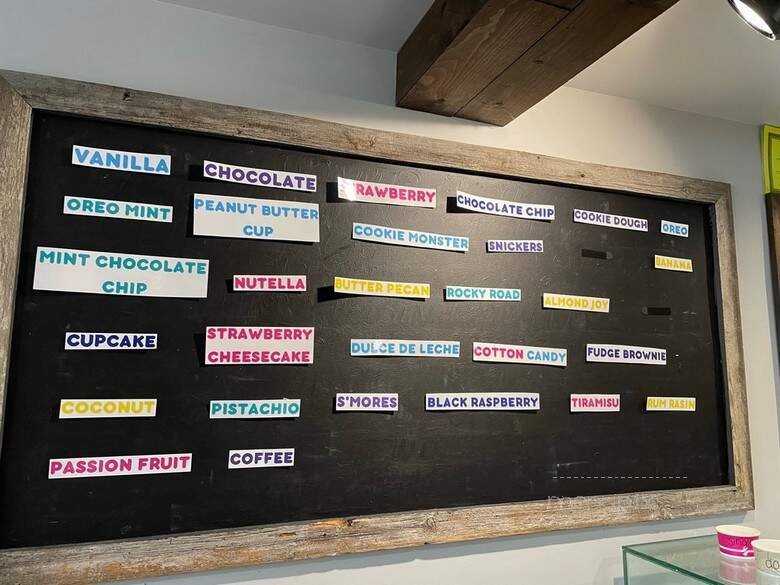 VANILLA
CHOCOLATE
STRAWBERRY
CHOCOLATE CHIP
COOKIE DOUGH
OREO
OREO MINT
PEANUT BUTTER
CUP
COOKIE MONSTER
SNICKERS
BANANA
MINT CHOCOLATE
CHIP
NUTELLA
BUTTER PECAN
ROCKY ROAD
ALMOND JOY
CUPCAKE
STRAWBERRY
CHEESECAKE
DULCE DE LECHE
COTTON CANDY
FUDGE BROWNIE
COCONUT
PISTACHIO
S'MORES
BLACK RASPBERRY
TIRAMISU
RUM RASIN
PASSION FRUIT
COFFEE